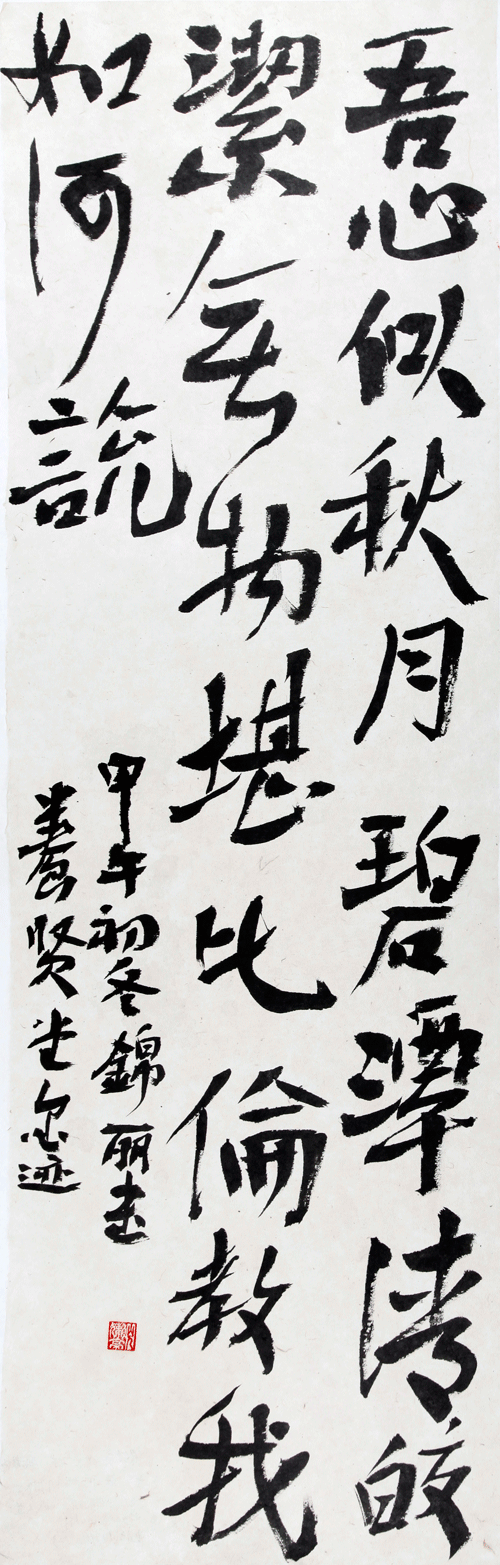 吾心似秋月碧潭清皎
潔無物堪比倫教我
如何説
甲午初冬錦丽书
養贤迹